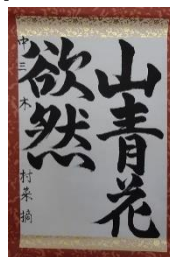 山青花
欲然
中三 木村菜摘